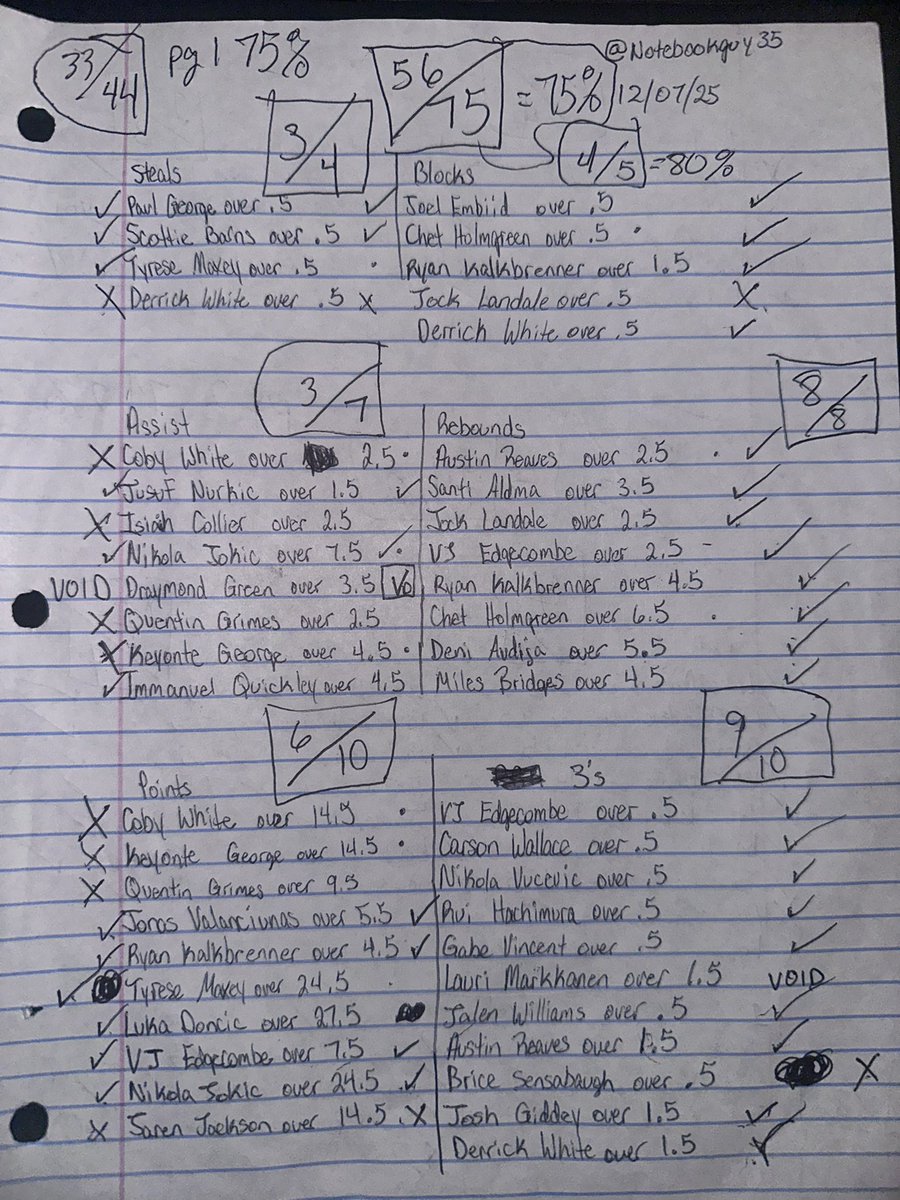 33/44 pg 1 75% 56/75 = 75% @Notebookguy35
12/07/25
3/4 4/5 = 80%
Steals
✓ Paul George over .5 ✓
✓ Scottie Barns over .5 ✓
✓ Tyrese Maxey over .5 .
X Derrick White over .5 X
Blocks
Joel Embiid over .5 ✓
Chet Holmgreen over .5 . ✓
Ryan Kalkbrenner over 1.5 ✓
Jock Landale over .5 X
Derrick White over .5 ✓
3/7
Assist
X Coby White over 2.5 .
✓ Jusuf Nurkic over 1.5 ✓
X Isiah Collier over 2.5
✓ Nikola Jokic over 7.5 ✓.
VOID Draymond Green over 3.5 Vo
X Quentin Grimes over 2.5
X Keyonte George over 4.5 .
✓ Immanuel Quickley over 4.5
8/8
Rebounds
Austin Reaves over 2.5 . ✓
Santi Aldma over 3.5 ✓
Jock Landale over 2.5 ✓
VJ Edgecombe over 2.5 - ✓
Ryan Kalkbrenner over 4.5 ✓
Chet Holmgreen over 6.5 . ✓
Deni Avdija over 5.5 ✓
Miles Bridges over 4.5 ✓
6/10
Points
X Coby White over 14.5 .
X Keyonte George over 14.5 .
X Quentin Grimes over 9.5
✓ Jonas Valanciunas over 5.5 ✓
✓ Ryan Kalkbrenner over 4.5 ✓
✓ Tyrese Maxey over 24.5 .
✓ Luka Doncic over 27.5
✓ VJ Edgecombe over 7.5 ✓
✓ Nikola Jokic over 24.5 ✓
X Jaren Jackson over 14.5 . X
9/10
3's
VJ Edgecombe over .5 ✓
Carson Wallace over .5 ✓
Nikola Vucevic over .5 ✓
Rui Hachimura over .5 ✓
Gabe Vincent over .5 ✓
Lauri Markkanen over 1.5 VOID
Jalen Williams over .5 ✓
Austin Reaves over 1.5 ✓
Brice Sensabaugh over .5 X
Josh Giddey over 1.5 ✓
Derrick White over 1.5 ✓